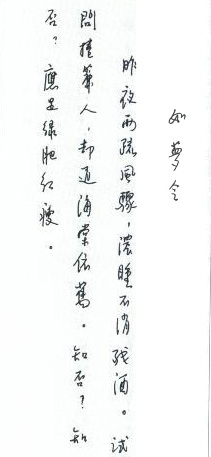 如夢令
昨夜雨疏風驟，濃睡不消残酒。試
問捲簾人，却道海棠依舊。知否？知
否？應是綠肥紅瘦。